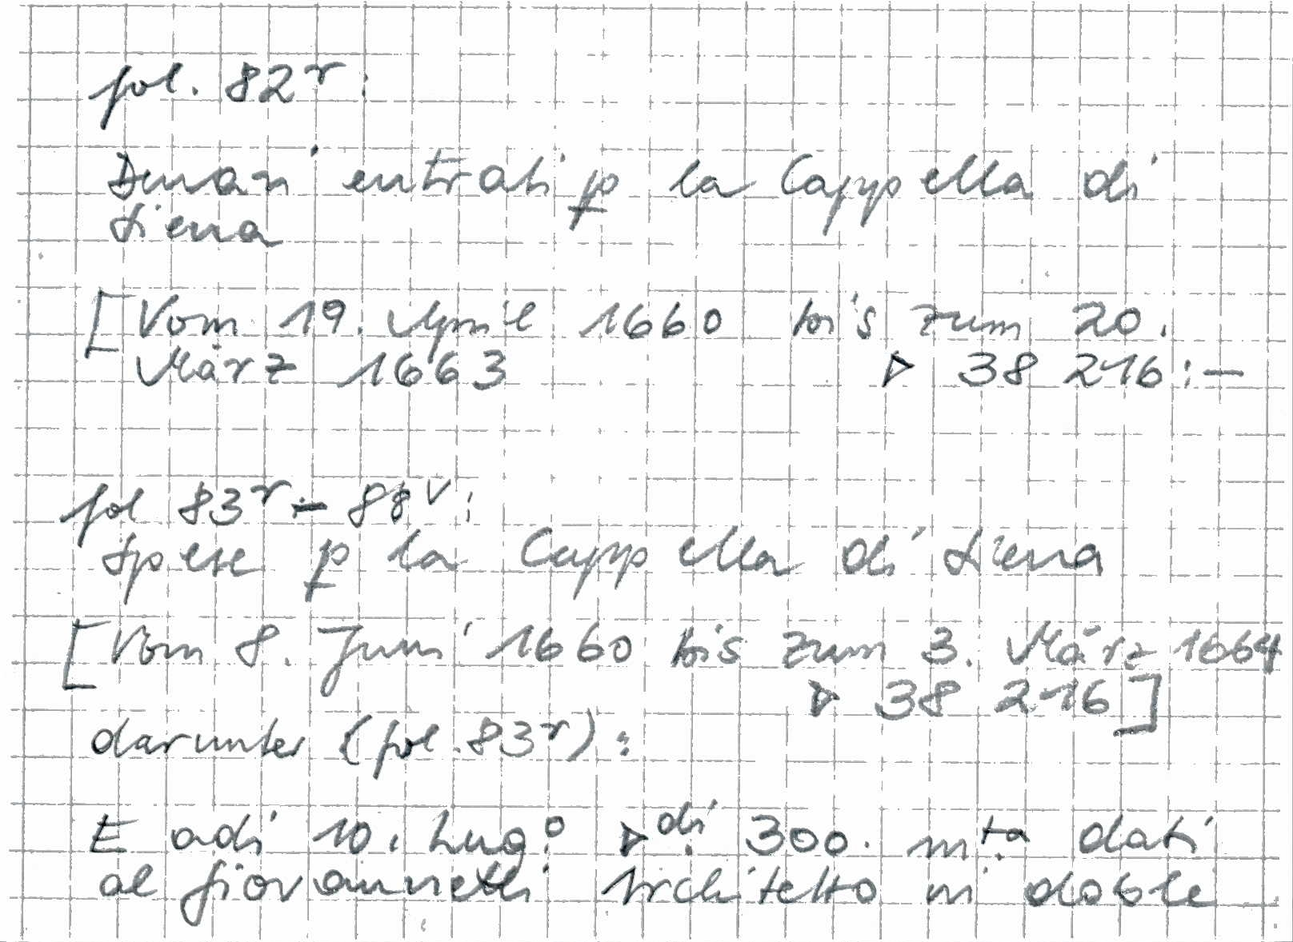 fol. 82r:
Denari entrati p la Cappella di
Siena
[Vom 19. April 1660 bis zum 20.
März 1663 ▷ 38 216:—
fol 83r - 88v:
Spese p la Cappella di Siena
[Vom 8. Juni 1660 bis zum 3. März 1664
▷ 38 216]
darunter (fol. 83r):
E adi 10. Lugo ▷di 300. mta dati
al Giovannelli Architetto in doble